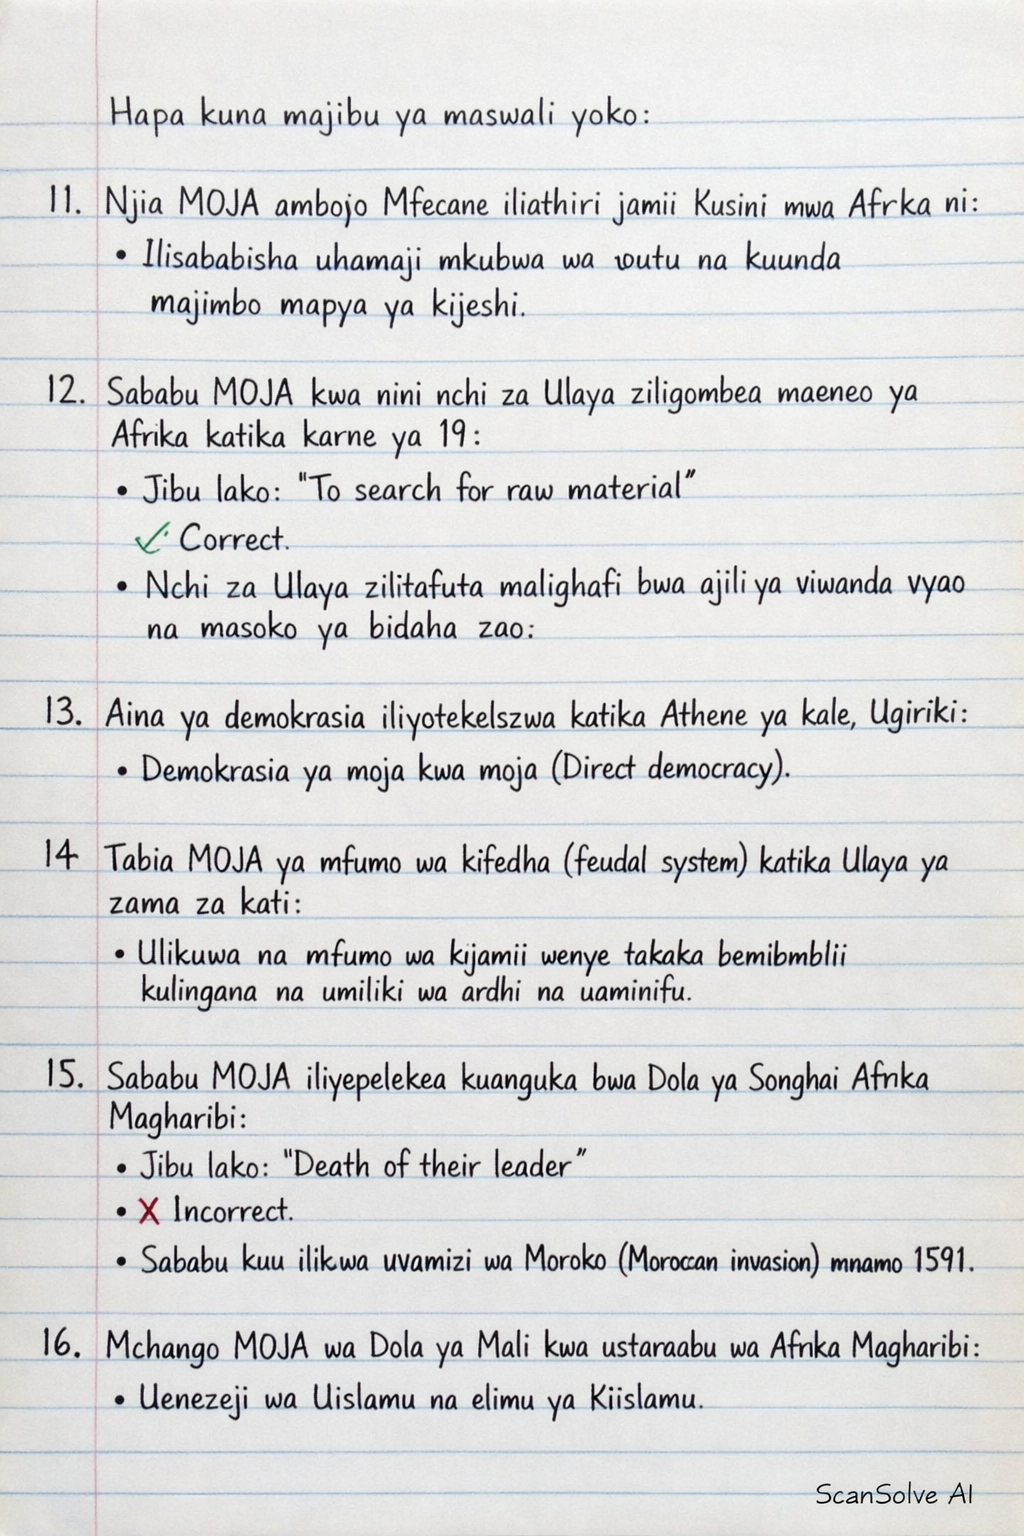 Hapa kuna majibu ya maswali yoko:
11. Njia MOJA ambojo Mfecane iliathiri jamii Kusini mwa Afrka ni:
• Ilisababisha uhamaji mkubwa wa woutu na kuunda
majimbo mapya ya kijeshi.
12. Sababu MOJA kwa nini nchi za Ulaya ziligombea maeneo ya
Afrika katika karne ya 19:
• Jibu lako: "To search for raw material"
✓ Correct.
• Nchi za Ulaya zilitafuta malighafi bwa ajili ya viwanda vyao
na masoko ya bidaha zao:
13. Aina ya demokrasia iliyotekelszwa katika Athene ya kale, Ugiriki:
• Demokrasia ya moja kwa moja (Direct democracy).
14 Tabia MOJA ya mfumo wa kifedha (feudal system) katika Ulaya ya
zama za kati:
• Ulikuwa na mfumo wa kijamii wenye takaka bemibmblii
kulingana na umiliki wa ardhi na uaminifu.
15. Sababu MOJA iliyepelekea kuanguka bwa Dola ya Songhai Afrika
Magharibi:
• Jibu lako: "Death of their leader"
• X Incorrect.
• Sababu kuu ilikwa uvamizi wa Moroko (Moroccan invasion) mnamo 1591.
16. Mchango MOJA wa Dola ya Mali kwa ustaraabu wa Afrika Magharibi:
• Uenezeji wa Uislamu na elimu ya Kiislamu.
ScanSolve AI